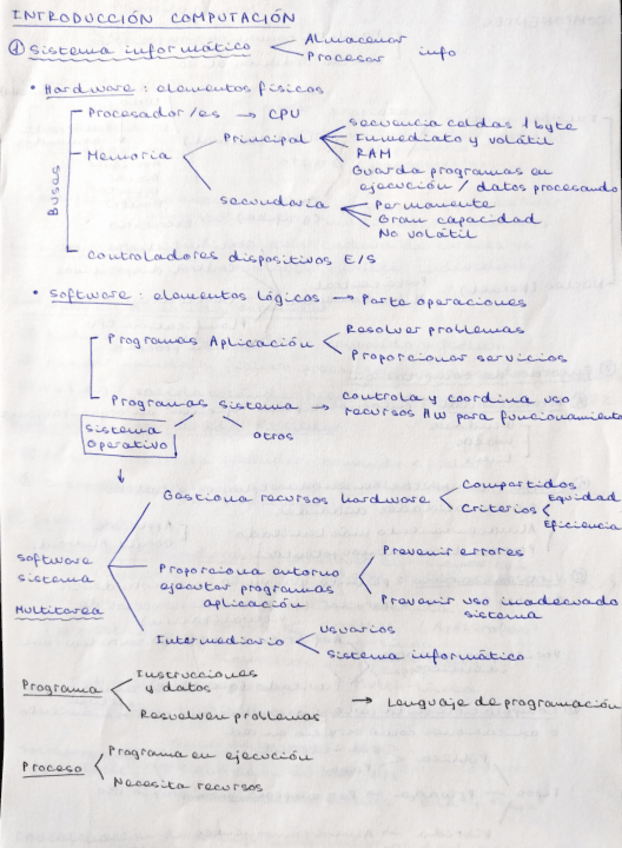 INTRODUCCIÓN COMPUTACIÓN
① Sistema informático
Almacenar
Procesar
info
• Hardware: elementos físicos
Buses
Procesador/es → CPU
Memoria
Principal
secuencia celdas 1 byte
Inmediato y volátil
RAM
Guarda programas en
ejecución / datos procesando
secundaria
Permanente
Gran capacidad
No volátil
Controladores dispositivos E/S
• Software: elementos lógicos → Parte operaciones
Programas Aplicación
Resolver problemas
Proporcionar servicios
Programas sistema →
controla y coordina uso
recursos HW para funcionamiento
Sistema
operativo
otros
↓
software
sistema
Multitarea
Gestiona recursos hardware
Compartidos
Criterios
Equidad
Eficiencia
Proporciona entorno
ejecutar programas
aplicación
Prevenir errores
Prevenir uso inadecuado
sistema
Intermediario
usuarios
Sistema informático
Programa
Instrucciones
y datos
Resuelven problemas
→ Lenguaje de programación
Proceso
Programa en ejecución
Necesita recursos